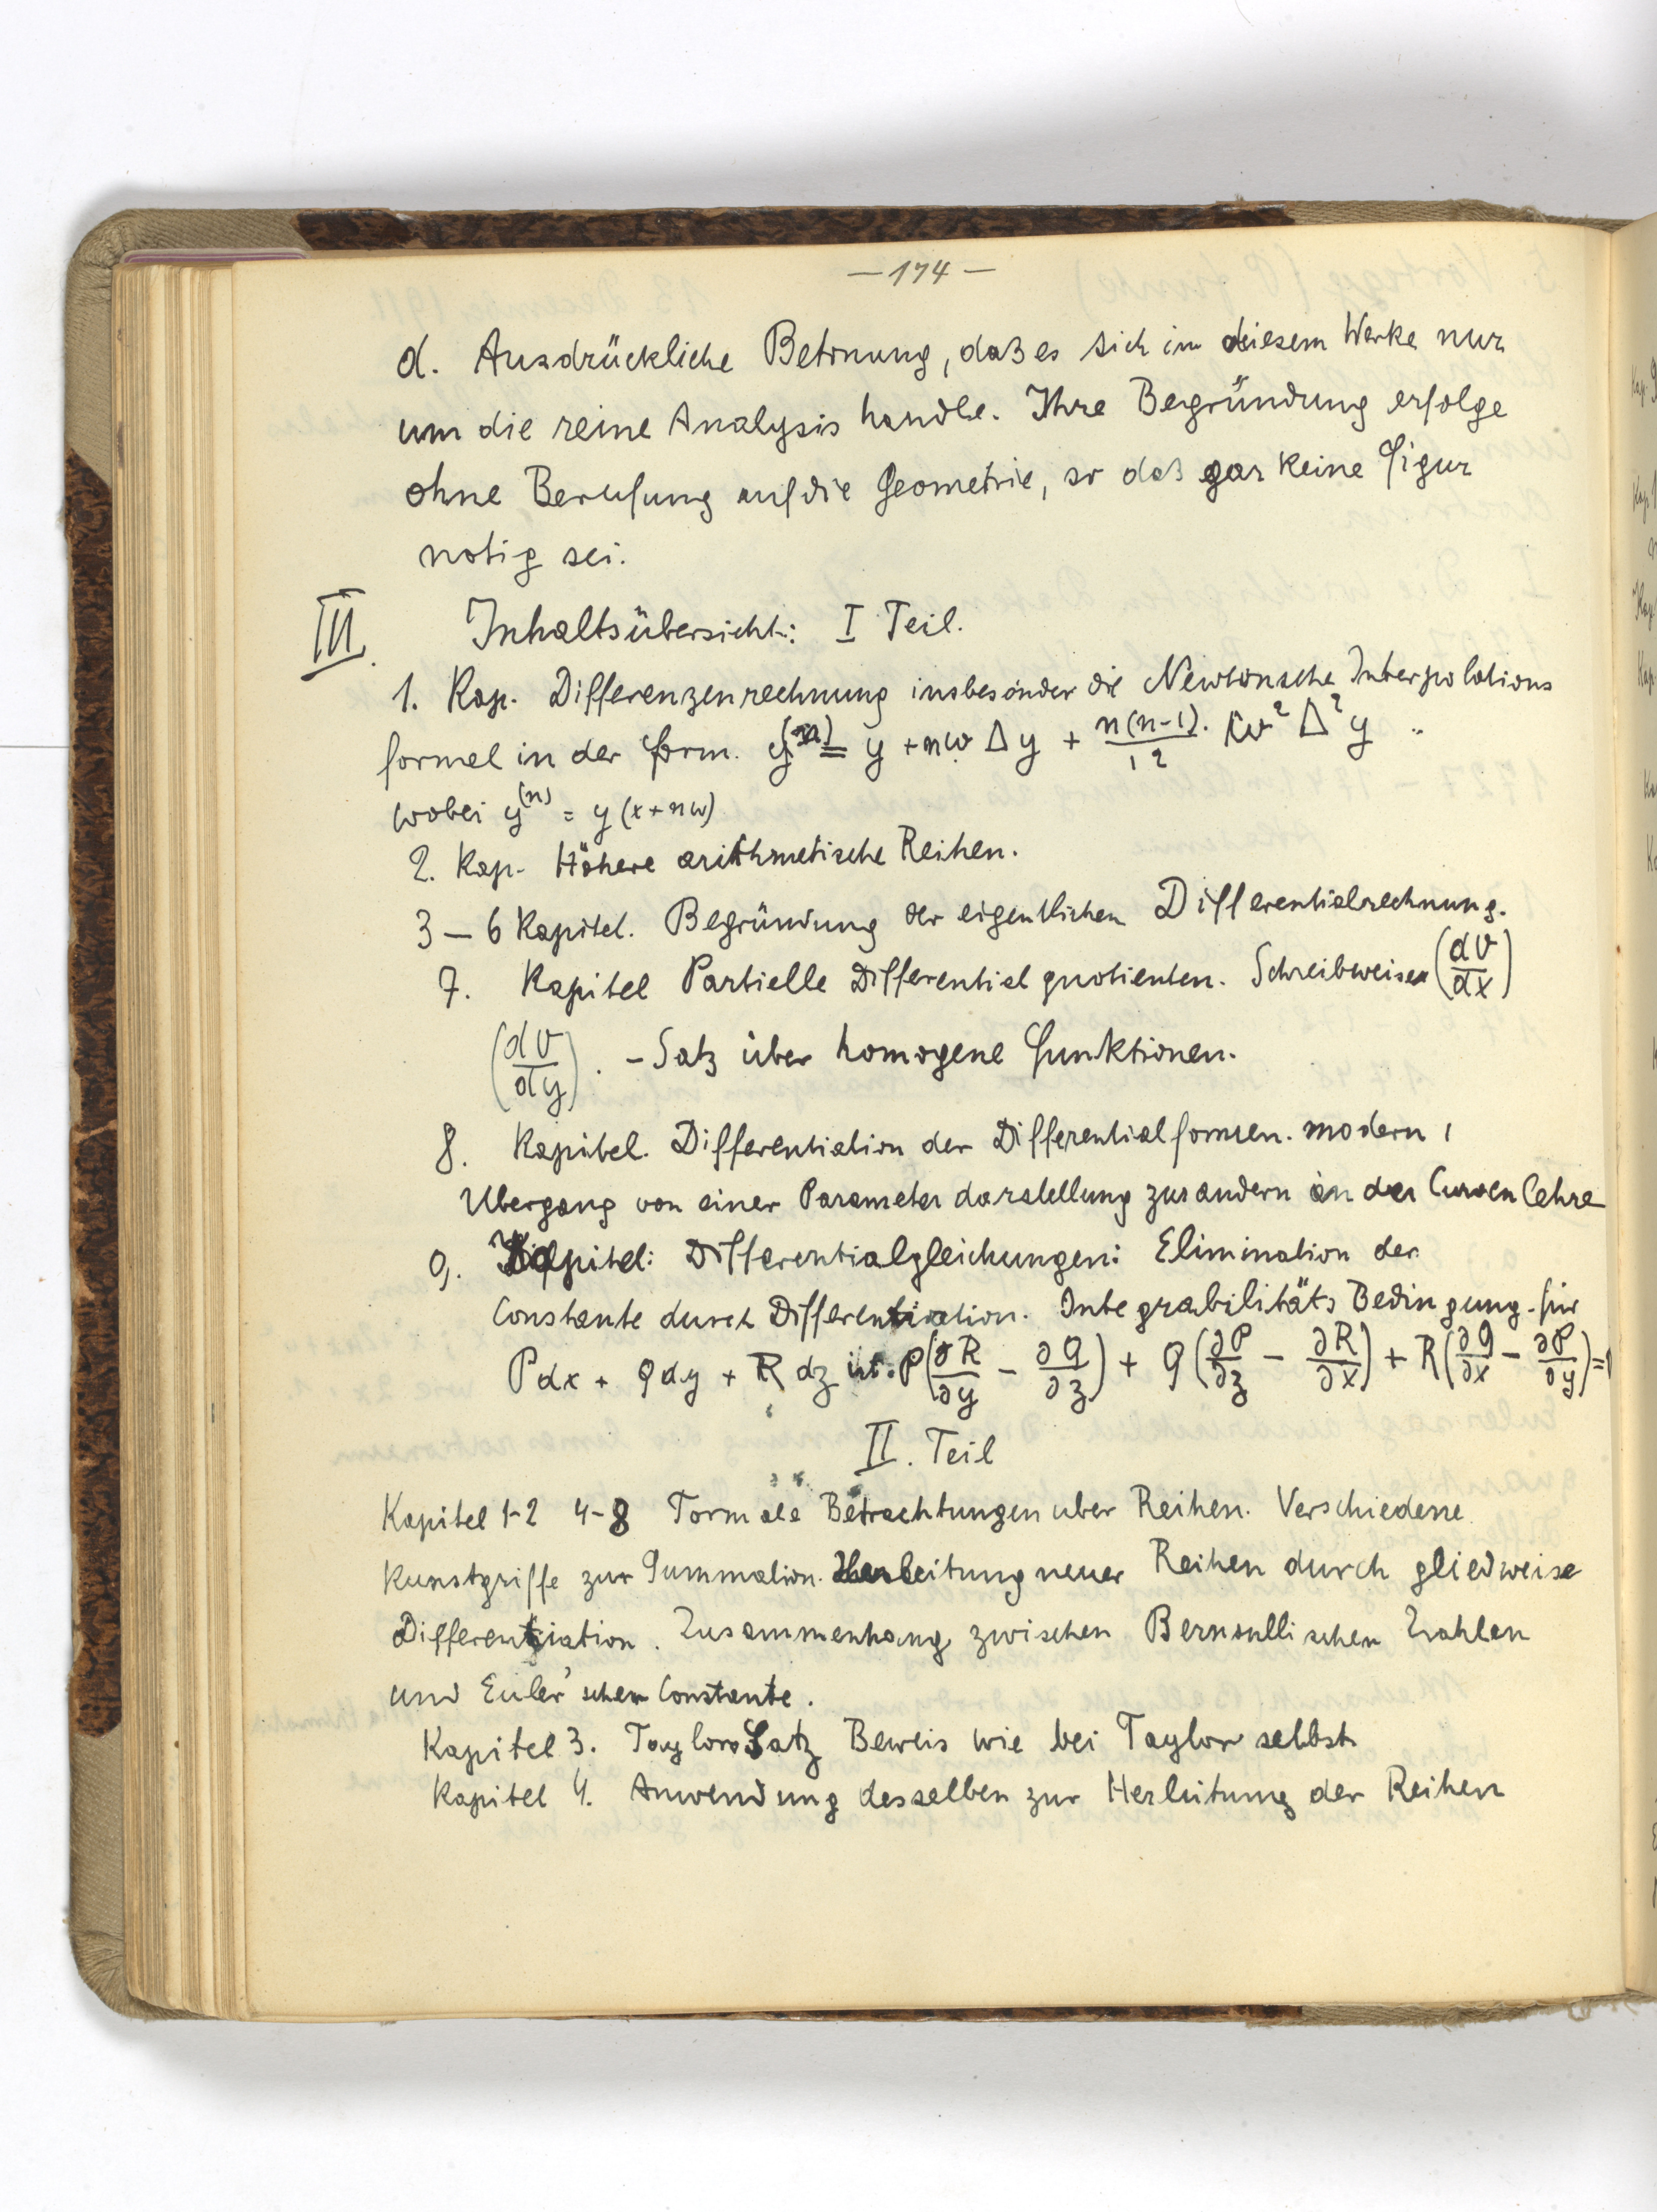 — 174 —
d. Ausdrückliche Betonung, daß es sich in diesem Werke nur
um die reine Analysis handle. Ihre Begründung erfolge
ohne Berufung auf die Geometrie, so daß gar keine Figur
notig sei.
III. Inhaltsübersicht: I Teil.
1. Kap. Differenzenrechnung insbesonder die Newtonsche Interpolations
formel in der Form. y^(n) = y + nw Δy + n(n-1)/12 · w² Δ²y ..
wobei y^(n) = y(x+nw)
2. Kap. Höhere arithmetische Reihen.
3 – 6 Kapitel. Begründung der eigentlichen Differentialrechnung.
7. Kapitel Partielle Differentialquotienten. Schreibweisen (dV/dx)
(dV/dy). – Satz über homogene Funktionen.
8. Kapitel. Differentiation der Differentialformen. modern,
Übergang von einer Parameterdarstellung zur andern in der Curvenlehre
9. Kapitel: Differentialgleichungen: Elimination der
Constante durch Differentiation. Integrabilitäts Bedingung für
Pdx + Qdy + Rdz ist: P(∂R/∂y − ∂Q/∂z) + Q(∂P/∂z − ∂R/∂x) + R(∂Q/∂x − ∂P/∂y) =
II. Teil
Kapitel 1-2 4-8 Formale Betrachtungen uber Reihen. Verschiedene
Kunstgriffe zur Summation. Herleitung neuer Reihen durch gliedweise
Differentiation. Zusammenhang zwischen Bernoullischen Zahlen
und Euler'schen Constante.
Kapitel 3. Taylors Satz Beweis wie bei Taylor selbst
Kapitel 4. Anwendung desselben zur Herleitung der Reihen